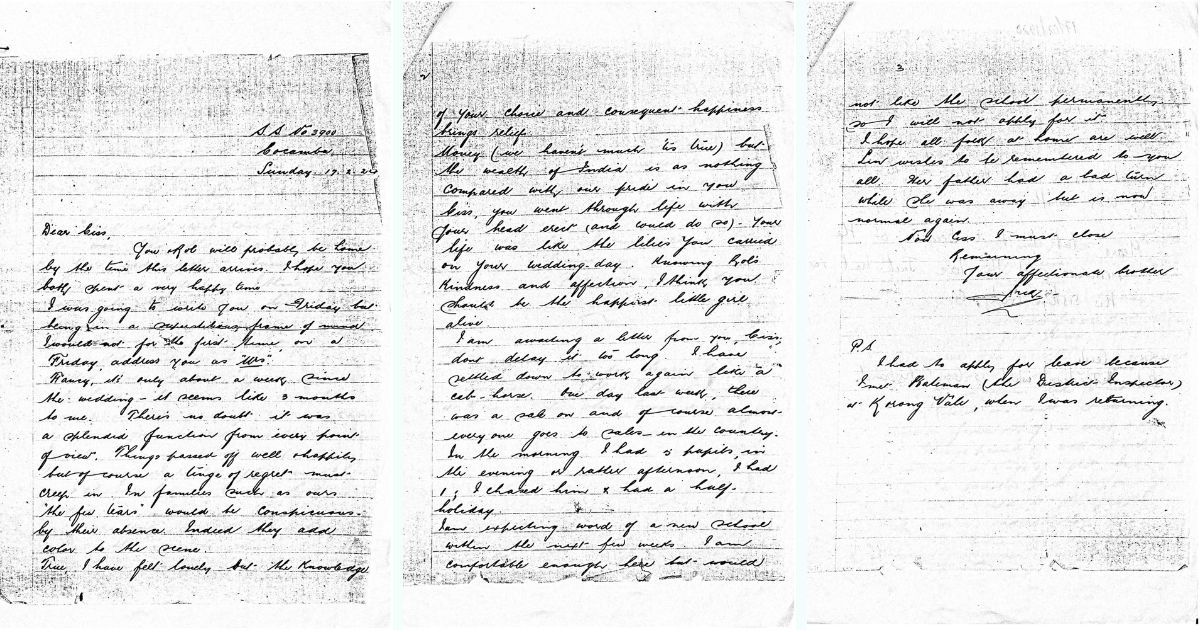 S.S. No 3900
Cocamba
Sunday. 17. 2.
Dear Ciss,
You & Bob will probably be home
by the time this letter arrives. I hope you
both spent a very happy time
I was going to write you on Friday but
being in a superstitious frame of mind
I would not for the first time, on a
Friday, address you as "Mrs".
Fancy, it's only about a week since
the wedding - it seems like 3 months
to me. There's no doubt it was
a splended function from every point
of view. Things passed off well & happily
but of course a tinge of regret must
creep in. In families such as ours
"the few tears" would be conspicuous
by their absence. Indeed they add
color to the scene.
True, I have felt lonely but the knowledge
2
of your choice and consequent happiness
brings relief.
Money (we haven't much 'tis true) but
the wealth of India is as nothing
compared with our pride in you
Ciss, you went through life with
your head erect (and could do so) - Your
life was like the lilies you carried
on your wedding-day. Knowing Bob's
kindness and affection, I think you
should be the happiest little girl
alive
I am awaiting a letter from you, Ciss,
dont delay it too long. I have
settled down to work again like "a"
cab-horse. One day last week, there
was a sale on and of course almost
everyone goes to sales in the country.
In the morning I had 3 pupils, in
the evening or rather afternoon, I had
1; I chased him & had a half-
holiday
I am expecting word of a new school
within the next few weeks. I am
comfortable enough here but would
3
not like the school permanently
so I will not apply for it
I hope all folk at home are well
wishes to be remembered to you
all. Her father had a bad turn
while she was away but is now
normal again.
Now Ciss I must close
Remaining
Your affectionate brother
P.S
I had to apply for leave because
Inet. Bateman (the District Inspector)
at Korong Vale, when I was returning.